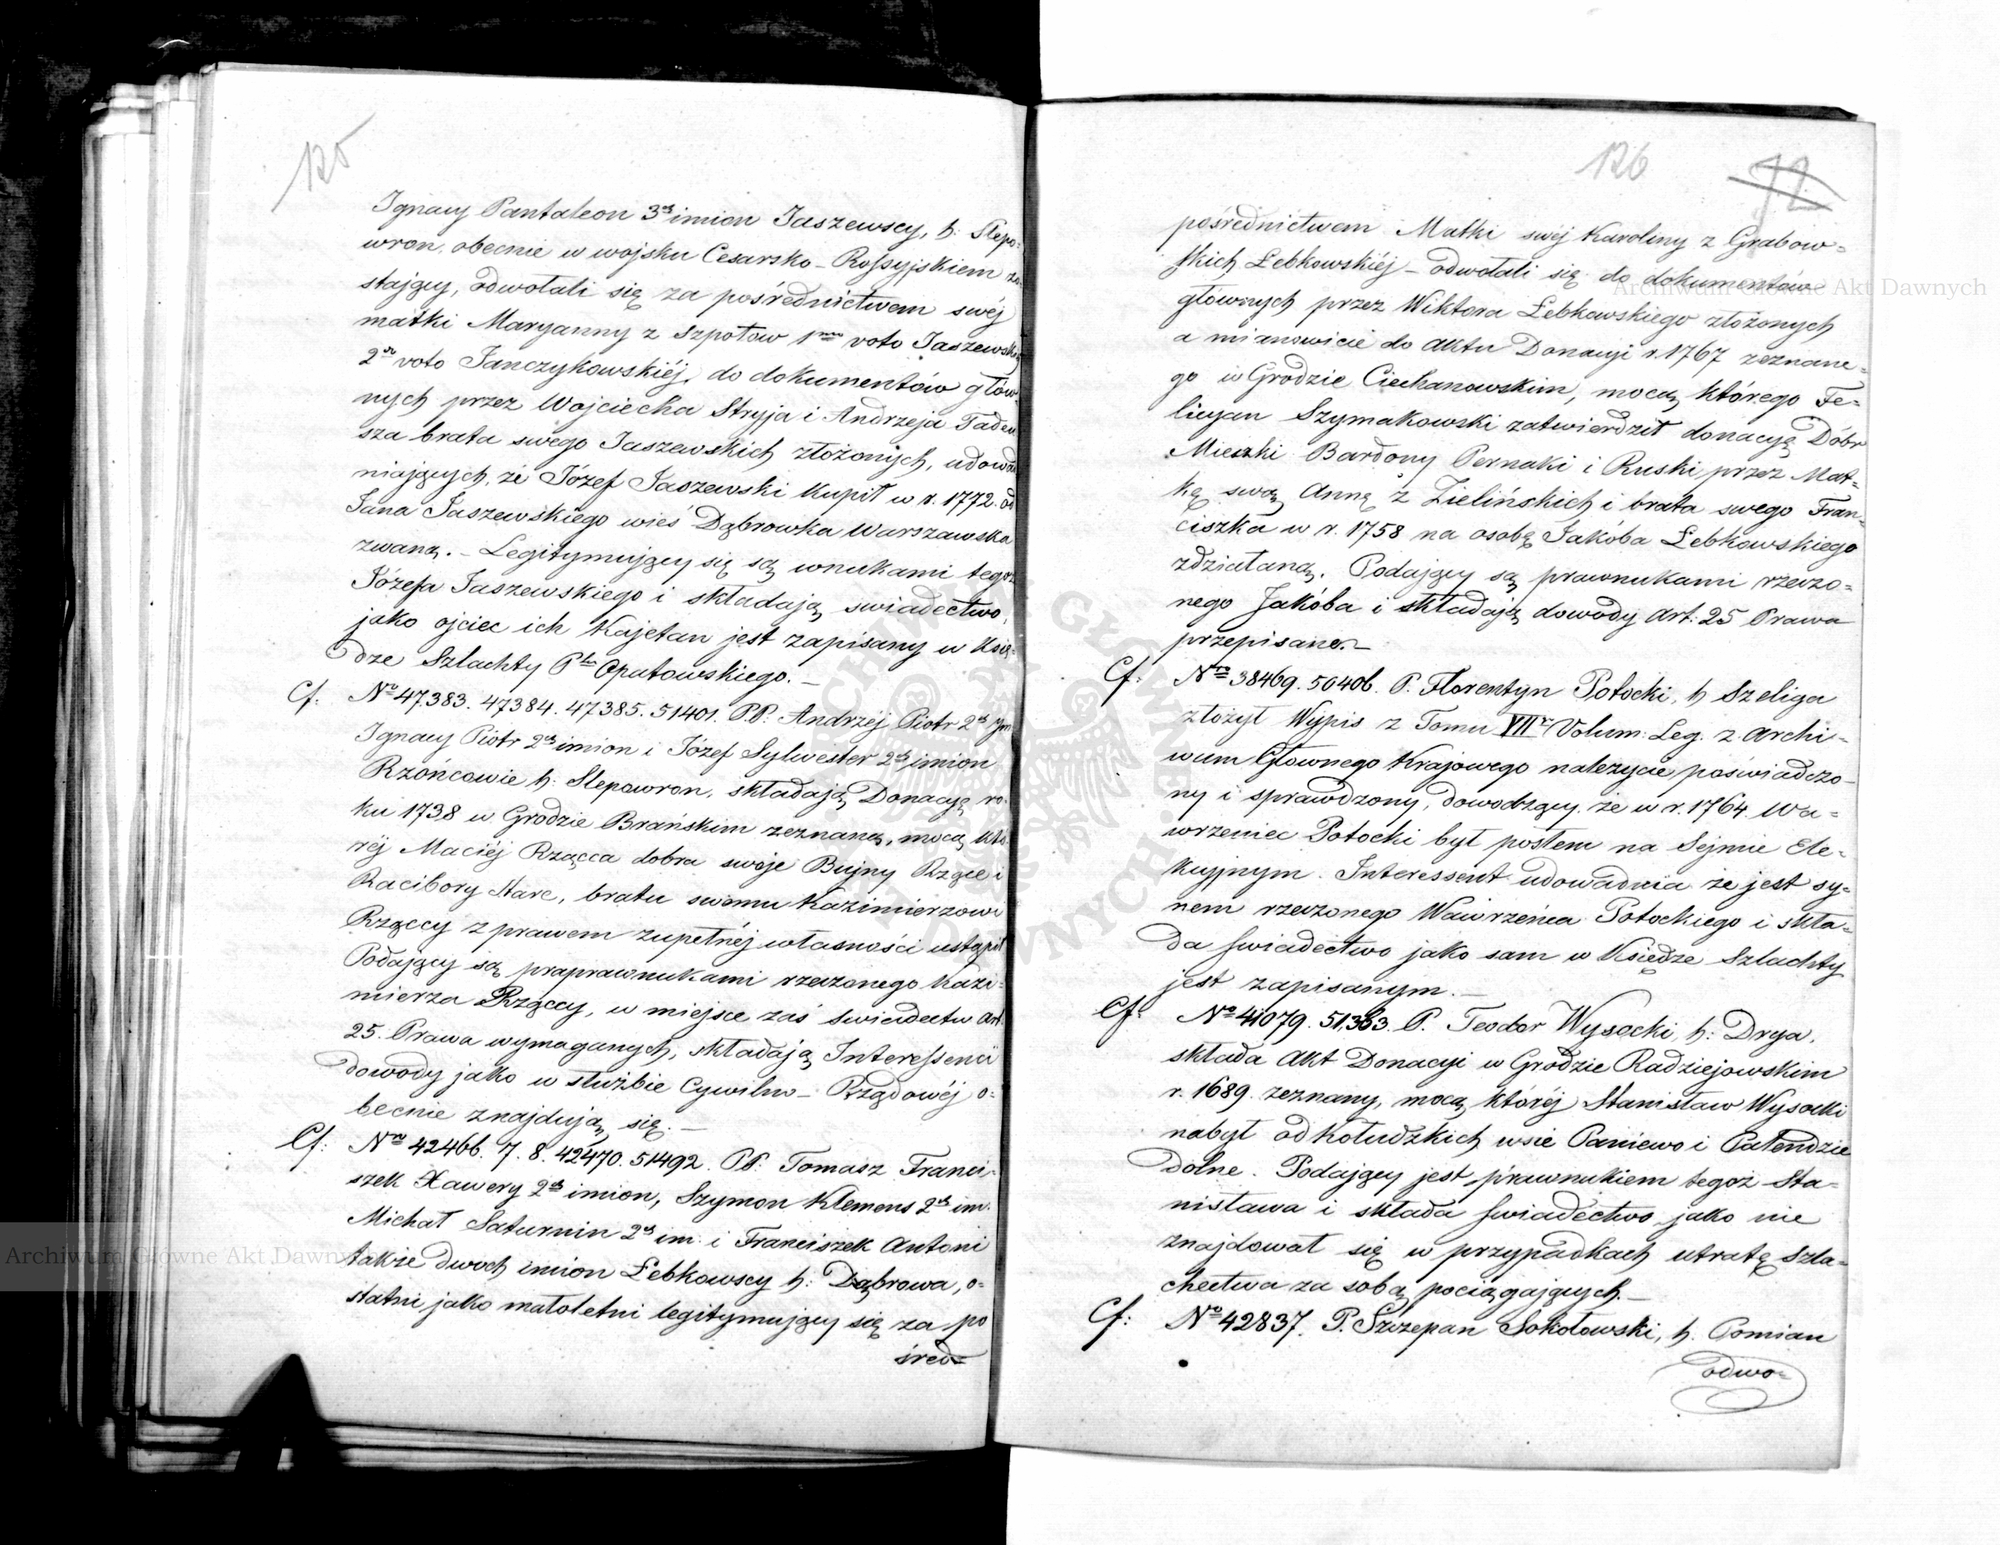 125
Ignacy Pantaleon 3ch imion Jaszewscy, h: Slepo-
wron, obecnie w wojsku Cesarsko-Rossyjskiem zo-
stający, odwołali się za pośrednictwem swéj
matki Maryanny z Szpotów 1mo voto Jaszewskiéj
2do voto Janczykowskiéj, do dokumentów głów-
nych przez Wojciecha Stryja i Andrzeja Tadeu-
sza brata swego Jaszewskich złożonych, udowa-
dniających, że Józef Jaszewski kupił w r. 1772. od
Jana Jaszewskiego wieś Dąbrowka Warszawska
zwaną. - Legitymujący się są wnukami tegoż
Józefa Jaszewskiego i składają swiadectwo,
jako ojciec ich Kajetan jest zapisany w Księ-
dze Szlachty Ptu Opatowskiego. -
Cf. No 47383. 47384. 47385. 51401. PP. Andrzéj Piotr 2ch im.
Ignacy Piotr 2ch imion i Józef Sylwester 2ch imion
Rzońcowie h: Slepowron, składają Donacyą ro-
ku 1738 w Grodzie Brańskim zeznaną, mocą któ-
réj Maciéj Rzącca dobra swoje Bujny Rzące i
Racibory Stare, bratu swemu Kazimierzowi
Rzączcy z prawem zupełnéj własności ustąpił
Podający są praprawnukami rzeczonego Kazi-
mierza Rzączcy, w miejsce zaś swiadectw Art.
25. Prawa wymaganych, składają Interessenci
dowody jako w służbie Cywilno-Rządowéj o-
becnie znajdują się. -
Cf: Nro 42466. 7. 8. 42470. 51492. PP. Tomasz Franci-
szek Xawery 2ch imion, Szymon Klemens 2ch im.
Michał Saturnin 2ch im: i Franciszek Antoni
także dwoch imion Łebkowscy h: Dąbrowa, o-
statni jako małoletni legitymujący się za po
sred-
126
72
pośrednictwem Matki swéj Karoliny z Grabow-
skich Łebkowskiéj - odwołali się do dokumentów
głównych przez Wiktora Łebkowskiego złożonych
a mianowicie do Aktu Donacyi r. 1767 zeznane-
go w Grodzie Ciechanowskim, mocą którego Fe-
licyan Szymakowski zatwierdził donacyą Dóbr
Mieszki Bardony Pernaki i Ruski przez Mat-
kę swą Annę z Zielińskich i brata swego Fran-
ciszka w r. 1758 na osobę Jakóba Łebkowskiego
zdziałaną. Podający są prawnukami rzeczo-
nego Jakóba i składają dowody Art: 25 Prawa
przepisane. -
Cf: Nro 38469. 50406. P. Florentyn Potocki, h Szeliga
złożył Wypis z Tomu VIIo Volum: Leg. z Archi-
wum Głownego Krajowego należycie poświadczo-
ny i sprawdzony, dowodzący, że w r. 1764 Wa-
wrzeniec Potocki był posłem na Sejmie Ele-
kcyjnym. Interessent udowadnia że jest sy-
nem rzeczonego Wawrzeńca Potockiego i skła-
da swiadectwo jako sam w Księdze Szlachty
jest zapisanym. -
Cf: No 41079. 51363. P. Teodor Wysocki, h: Drya,
składa Akt Donacyi w Grodzie Radziejowskim
r. 1689. zeznany, mocą któréj Stanisław Wysocki
nabył od Kołudzkich wsie Paniewo i Calendzie
dolne. Podający jest prawnukiem tegoż Sta-
nisława i składa swiadectwo, jako nie
znajdował się w przypadkach utratę szla-
chectwa za sobą pociągających. -
Cf: No 42837. P. Szczepan Sokołowski, h. Pomian
odwo-
Archiwum Główne Akt Dawnych
Archiwum Główne Akt Dawnych